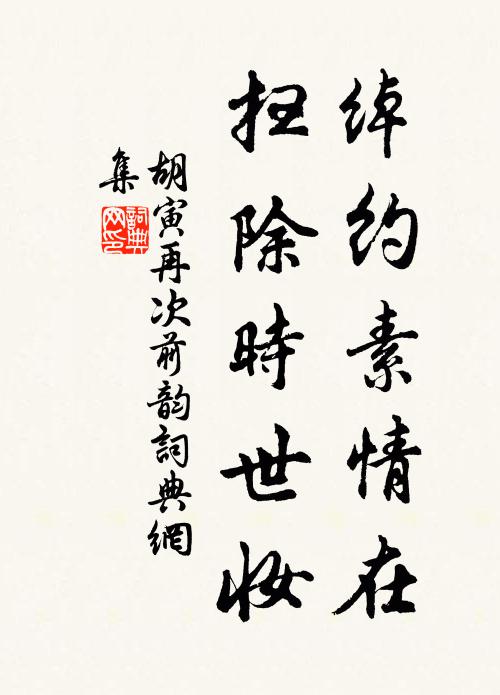 綽約素情在
扫除時世妆
胡寅再次前韵詞典網
集
詞典
网印